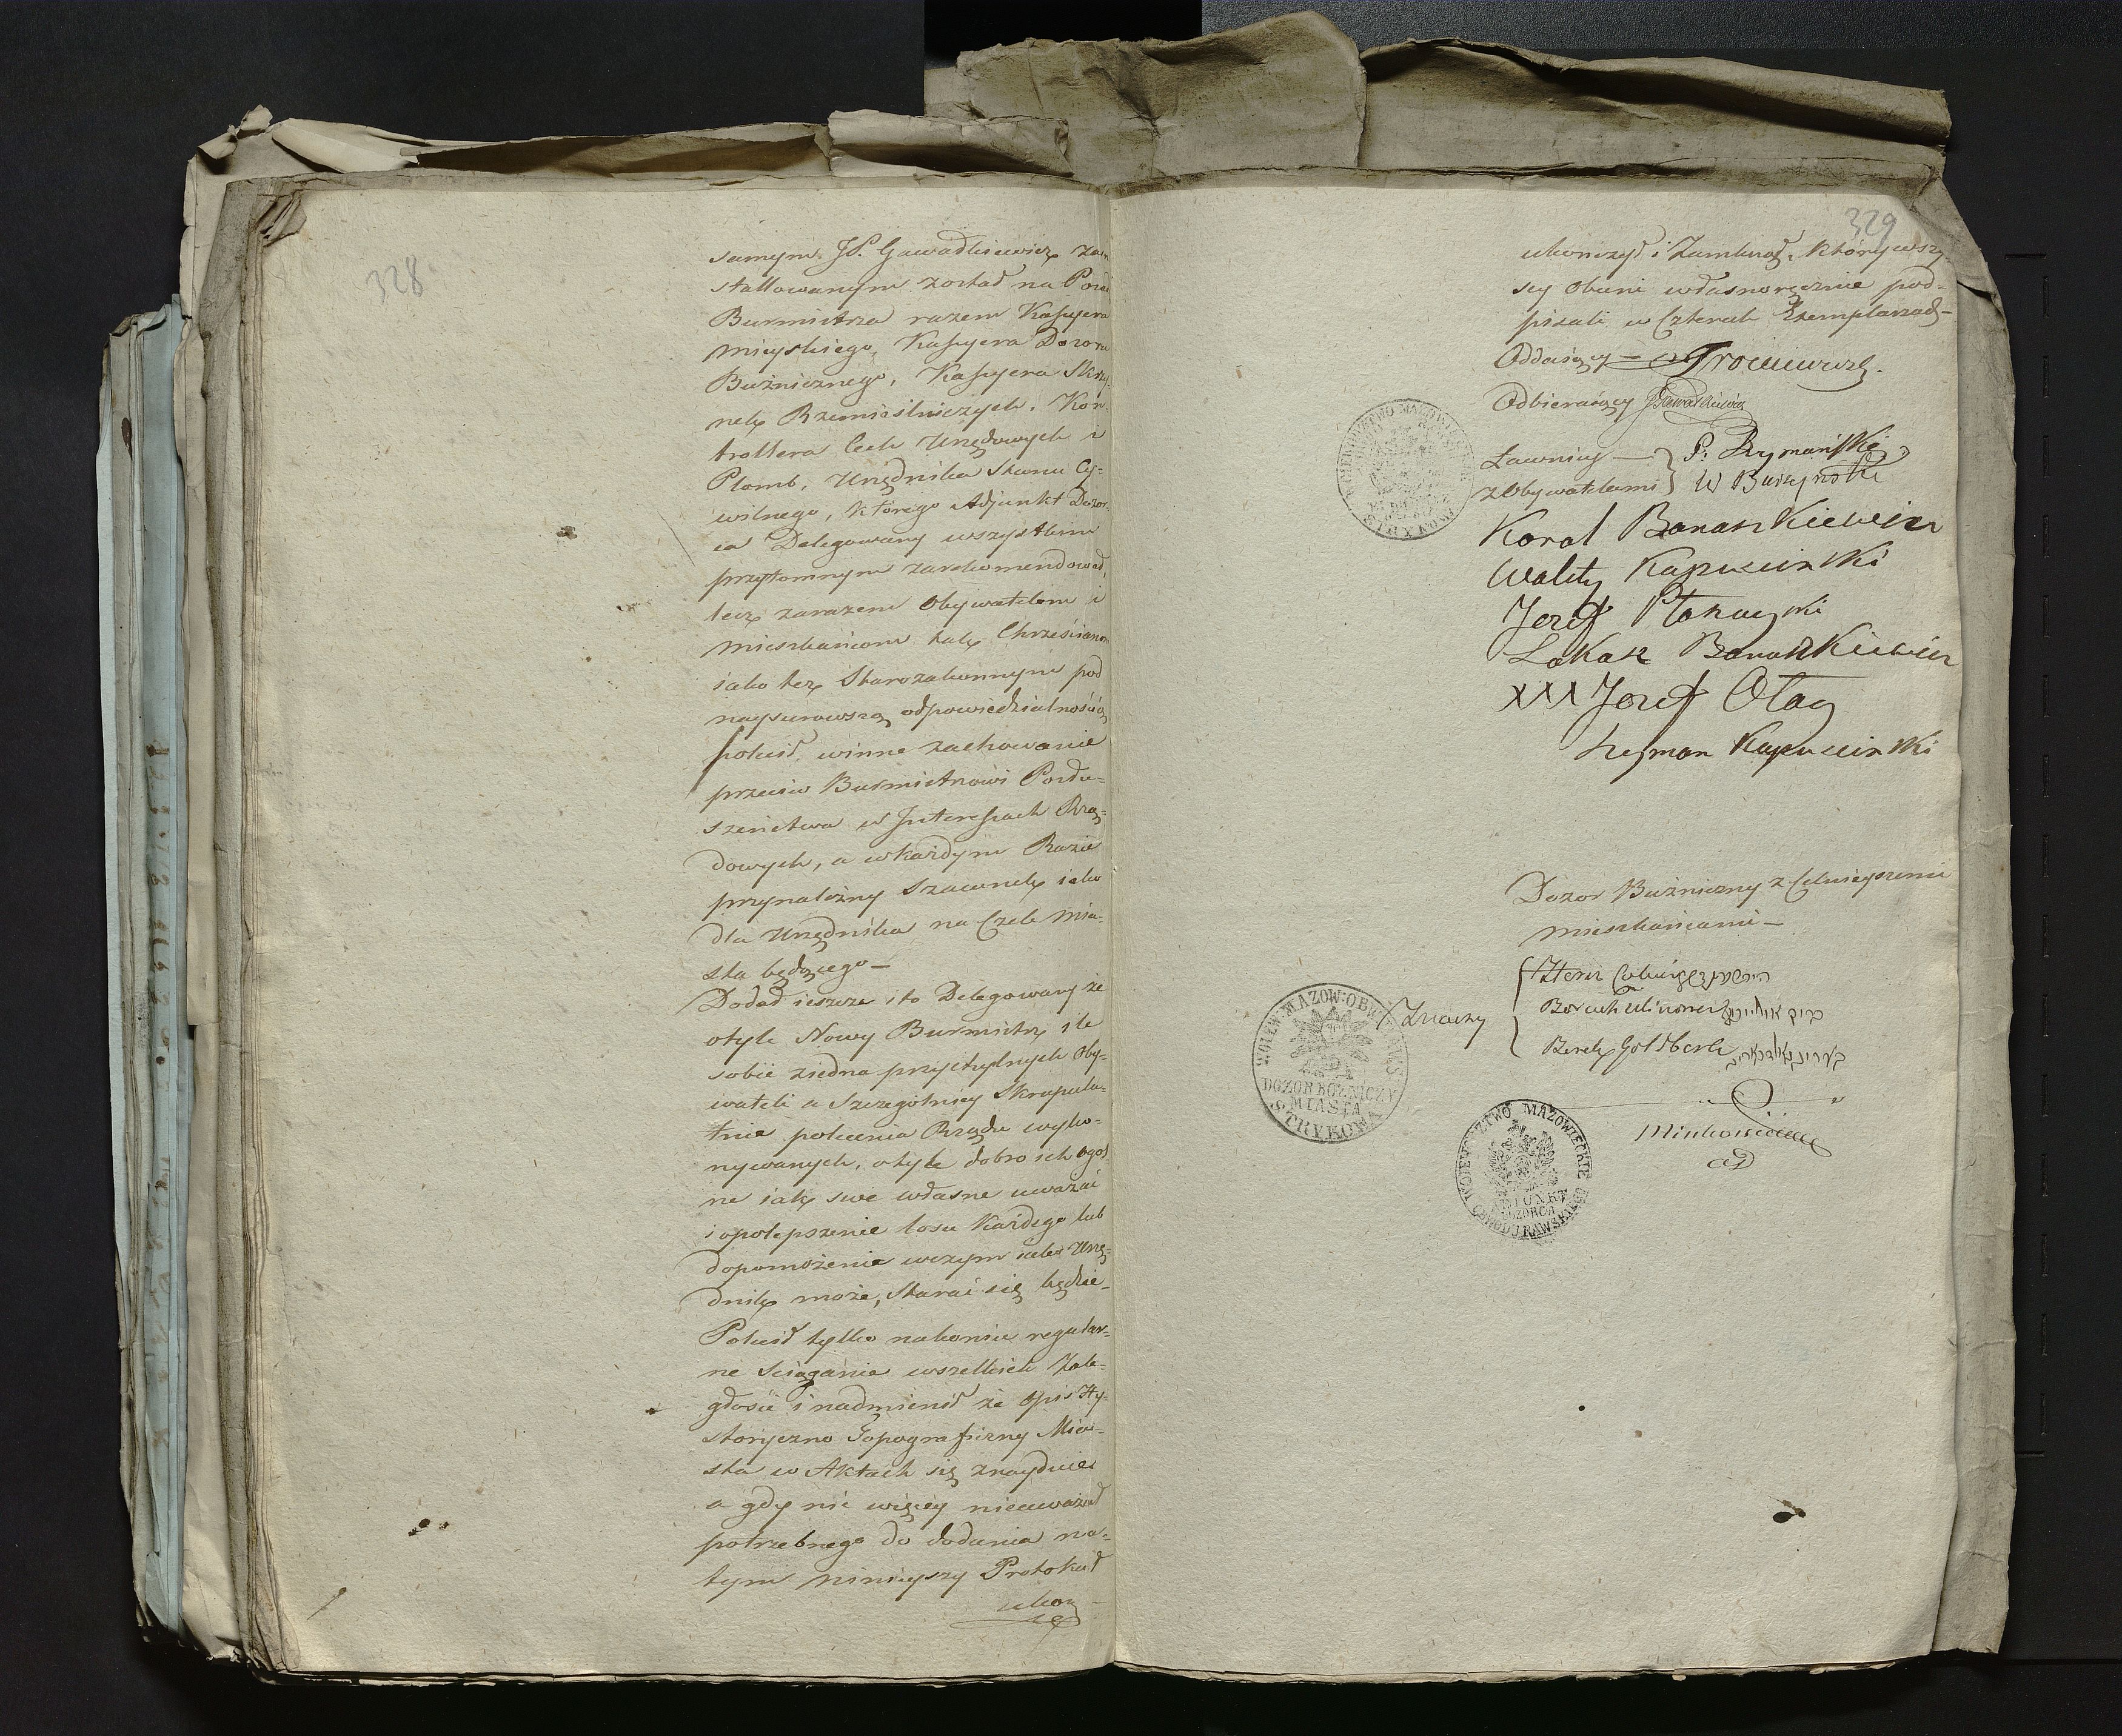 328
samym JP. Gawadkiewicz zain
stallowanym został na Posad
Burmistrza razem Kassyera
mieyskiego, Kassyera Dozoru
Bużnicznego, Kassyera Skrzy-
nek Rzemieślniczych, Kon-
trollera Cech Urzędowych i
Plomb, Urzędnika Stanu Cy-
wilnego, którego Adjunkt Dozor-
ca Delegowany wszystkim
przytomnym zarekomendował,
lecz zarazem Obywatelom i
mieszkańcom tak Chrześcianom
iako też Starozakonnym pod
naysurowszą odpowiedzialnością
polecił, winne zachowanie
przeciw Burmistrzowi Posłu-
szeństwa w Interessach Rzą-
dowych, a w każdym Razie
przynależny Szacunek iako
dla Urzędnika na Czele Mia-
sta będącego—
Dodał ieszcze i to Delegowany że
otyle Nowy Burmistrz ile
sobie ziedna przychylnych Oby-
wateli a Szczegolniey Skrupula-
tnie polecenia Rządu wyko-
nywanych, otyle dobro ich ogol
ne iak swe własne uważać
i o polepszenie losu Każdego lub
dopomożenie w czym iako Urzę-
dnik może, starać się będzie—
Polecił tylko nakoniec regular-
ne Sciąganie wszelkich Zale-
głości i nadmienił że Opis Hy-
storyczno Topograficzny Mia-
sta w Aktach się znayduie
a gdy nic więcey nieuważał
potrzebnego do dodania na-
tym ninieyszy Protokuł
ukoń-
329
ukończył i Zamknął, który wszy
scy Obecni własnoręcznie pod-
pisali w Czterech Exemplarzach—
Oddaiący—
Odbieraiący JGawadkiewicz
Ławnicy— P. Rymański
z Obywatelami W Burzyński
Karol Banaszkiewicz
Walęty Kapuciński
Jozef Ptaszyński
Łukasz Banaszkiewicz
XXX Jozef Olag
Szymon Kapuciński
WOJEWODZTWO MAZOWIECKIE
STRYKOW
Dozor Bużniczny z Celnieyszemi
mieszkańcami—
Herz
Boruch
Berek Goldberg
WOIEW: MAZOW: OBW: RAWS:
DOZOR BOZNICZY
MIASTA
STRYKOWA
WOJEWODZTWO MAZOWIECKIE
ADIUNKT
DOZORCA
OBWODU RAWSKIEGO